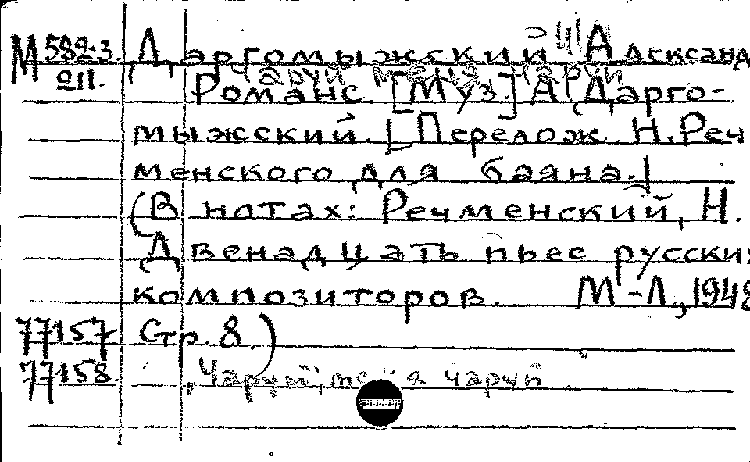 М 582-3. Даргомыжский Александ
211. Чаруй меня чаруй
Романс. [Муз] А Дарго-
мыжский. [Перелож. Н. Реч
менского для баяна.]
(В нотах: Речменский, Н.
Двенадцать пьес русских
композиторов. М-Л., 1948
77157 Стр. 8.)
77158 Чаруй, чаруй